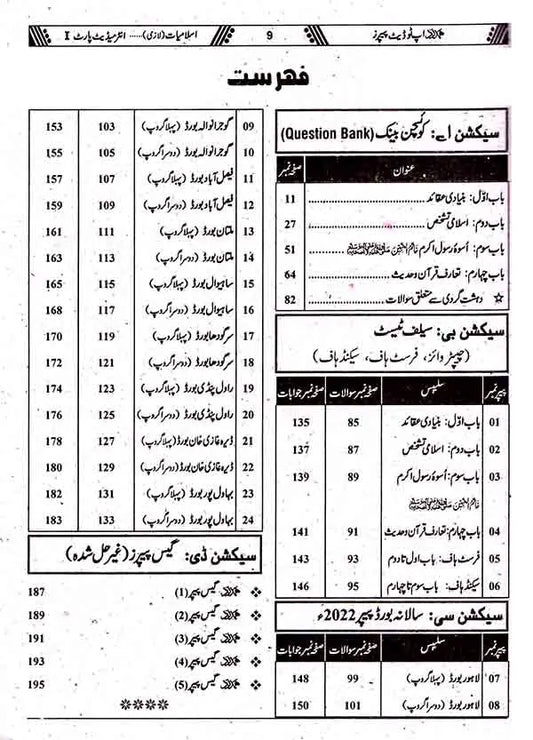 اپ ٹو ڈیٹ پیپرز
9
اسلامیات (لازمی)..... انٹرمیڈیٹ پارٹ I
فہرست
سیکشن اے: کوئسچن بینک (Question Bank)
عنوان صفحہ نمبر
باب اوّل: بنیادی عقائد 11
باب دوم: اسلامی تشخص 27
باب سوم: اُسوۂ رسول اکرم 51
باب چہارم: تعارف قرآن و حدیث 64
☆ دہشت گردی سے متعلق سوالات 82
سیکشن بی: سیلف ٹیسٹ
(چیپٹر وائز، فرسٹ ہاف، سیکنڈ ہاف)
پیپر نمبر سلیبس صفحہ نمبر سوالات صفحہ نمبر جوابات
01 باب اوّل: بنیادی عقائد 85 135
02 باب دوم: اسلامی تشخص 87 137
03 باب سوم: اُسوۂ رسول اکرم 89 139
04 باب چہارم: تعارف قرآن و حدیث 91 141
05 فرسٹ ہاف: باب اول تا دوم 93 143
06 سیکنڈ ہاف: باب سوم تا چہارم 95 146
سیکشن سی: سالانہ بورڈ پیپر 2022ء
پیپر نمبر سلیبس صفحہ نمبر سوالات صفحہ نمبر جوابات
07 لاہور بورڈ (پہلا گروپ) 99 148
08 لاہور بورڈ (دوسرا گروپ) 101 150
09 گوجرانوالہ بورڈ (پہلا گروپ) 103 153
10 گوجرانوالہ بورڈ (دوسرا گروپ) 105 155
11 فیصل آباد بورڈ (پہلا گروپ) 107 157
12 فیصل آباد بورڈ (دوسرا گروپ) 109 159
13 ملتان بورڈ (پہلا گروپ) 111 161
14 ملتان بورڈ (دوسرا گروپ) 113 163
15 ساہیوال بورڈ (پہلا گروپ) 115 165
16 ساہیوال بورڈ (دوسرا گروپ) 117 168
17 سرگودھا بورڈ (پہلا گروپ) 119 170
18 سرگودھا بورڈ (دوسرا گروپ) 121 172
19 راول پنڈی بورڈ (پہلا گروپ) 123 174
20 راول پنڈی بورڈ (دوسرا گروپ) 125 176
21 ڈیرہ غازی خان بورڈ (پہلا گروپ) 127 178
22 ڈیرہ غازی خان بورڈ (دوسرا گروپ) 129 180
23 بہاول پور بورڈ (پہلا گروپ) 131 182
24 بہاول پور بورڈ (دوسرا گروپ) 133 183
سیکشن ڈی: گیس پیپرز (غیر حل شدہ)
❖ گیس پیپر (1) 187
❖ گیس پیپر (2) 189
❖ گیس پیپر (3) 191
❖ گیس پیپر (4) 193
❖ گیس پیپر (5) 195